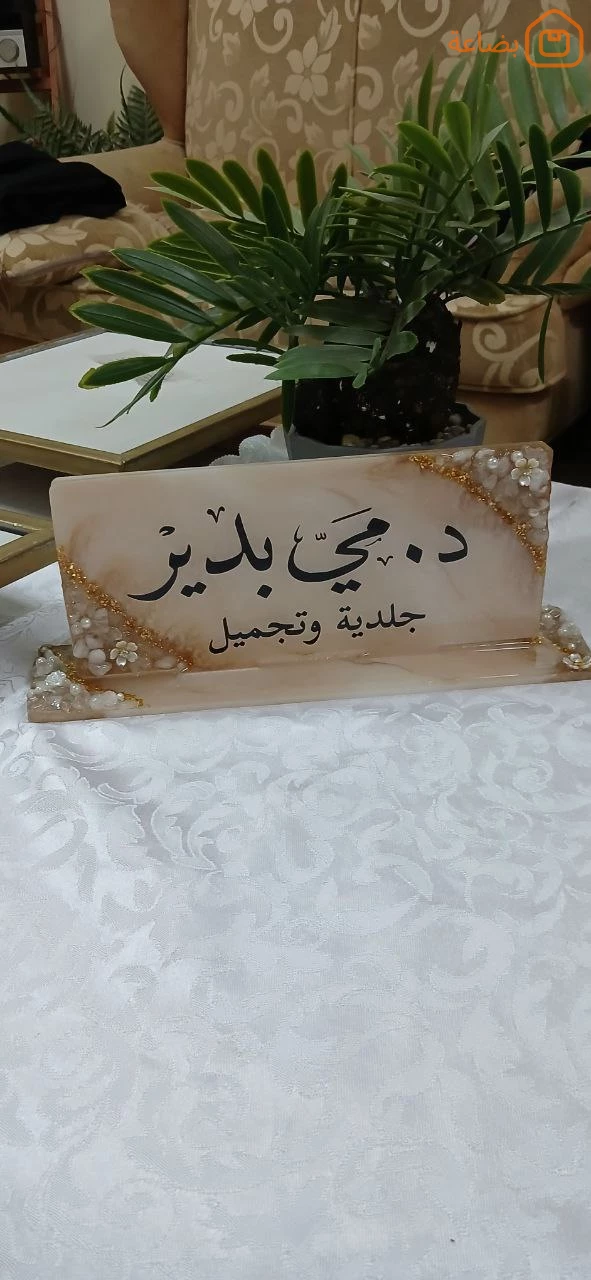 بضاعة
د. ميّ بدير
جلدية وتجميل